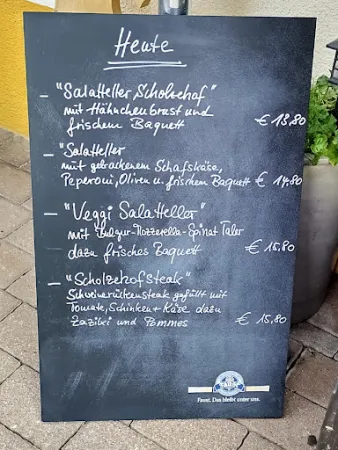 Heute
- "Salatteller Scholzehof"
mit Hähnchenbrust und
frischem Baguett € 13,80
- "Salatteller
mit gebackenem Schafskäse,
Peperoni, Oliven u. frischem Baguett € 14,80
- "Veggi Salatteller"
mit Bulgur-Mozzarella-Spinat Taler
dazu frisches Baguett € 15,80
- "Scholzehofsteak"
Schweinerückensteak gefüllt mit
Tomate, Schinken + Käse dazu
Zaziki und Pommes € 15,80
Das bleibt unter uns.